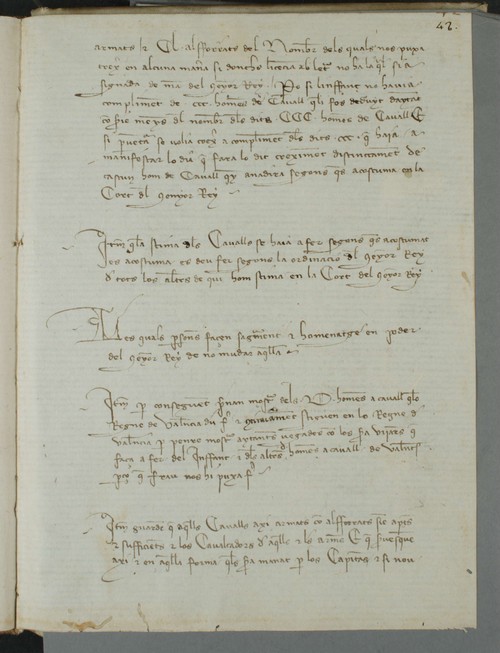 42.
armats h CL alfforrats del Nombre dels quals nos puxa
en alcuna man̄a si donchs licencia ab letr̄ no ha la ql̄ sia
signada de ma del senyor Rey. Pero si linffant no havia
compliment de ccc. homens de Cavall qli fos deduyt
co sie menys dl nombre dels dits CCC homens de Cavall E
si puxa so volia a compliment dels dits .ccc. q̄ haia a
manifestar lo dia q̄ fara lo dit creximent distinctament de
cascun hom de Cavall qy anadira segons qs̄ acostuma en la
Cort dl senyor Rey
Itm̄ ql̄a stima dls Cavalls se haia a fer segons qs̄ acostumat
es acostuma es deu fer segons la ordinacio dl senyor Rey
d tots los altres de qui hom stima en la Cort del senyor Rey
Les quals psones facen sagrament & homenatge en poder
del senyor Rey de no mudar aqlla
Itm̄ p conseguent sien mostr̄ dels D. homens a cavall qlo
Regne de Valencia du fr̄ & continuament serven en lo Regne d
valencia p penre mostr̄ aytantes vegades co los sia vijares q̄
faca a fer del Inffant & dls altres D. homens a cavall de Valencia
pço q̄ frau nos hi puxa fr̄
Itm̄ guarde q̄ aqlls Cavalls axi armats co alfforrats sien apts
& sufficients & los Cavalcadors d aqlls & les armes E q̄
axi & en aqlla forma qls sia manat p los Capitans & si nou